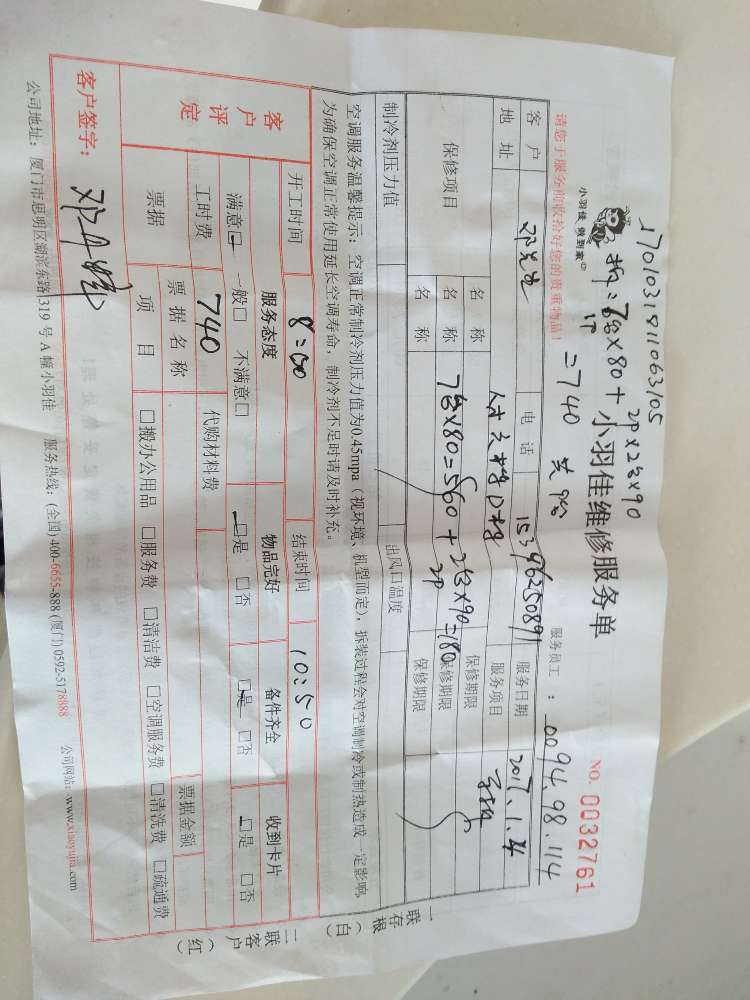 1701031811063105
拆:7台×80+2P×2台×90
1P
=740 共9台
小羽佳 做到家
小羽佳维修服务单
NO. 0032761
请您于服务前收拾好您的贵重物品!
服务员工: 0094.98.114
客户 邓先生 电话 15396250891 服务日期 2017.1.14
地址 服务项目
保修项目 名称 保修期限
名称 7台×80=560+2台×90=180 保修期限
2P
名称 保修期限
制冷剂压力值 出风口温度
空调服务温馨提示:空调正常制冷剂压力值为0.45mpa(视环境、机型而定),拆装过程会对空调制冷或制热造成一定影响
为确保空调正常使用延长空调寿命,制冷剂不足时请及时补充。
开工时间 8:00 结束时间 10:50
客户评定
服务态度 物品完好 备件齐全 收到卡片
满意□ 一般□ 不满意□ □是 □否 □是 □否 □是 □否
工时费 740 代购材料费
票据 票据名称 票据金额
项目 □搬办公用品 □服务费 □清洁费 □空调服务费 □清洗费 □疏通费
客户签字:
公司地址:厦门市思明区湖滨东路319号A幢小羽佳 服务热线:(全国)400-6655-888(厦门)0592-5178888 公司网站:www.xiaoyujia.com
一联存根(白)
二联客户(红)